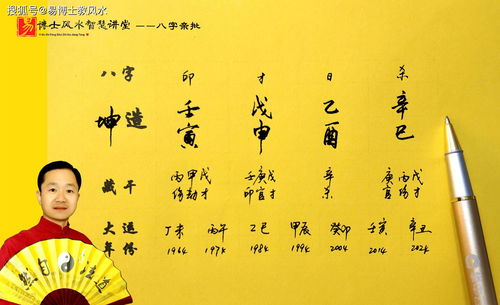 搜狐号@易博士教风水
易博士风水智慧讲堂 ——八字亲批
八字 卯 才 日 杀
坤造 壬寅 戊申 乙酉 辛巳
藏干 丙甲戊 壬庚戊 辛 庚丙戊
伤劫才 卯官才 杀 官伤才
大运 丁未 丙午 乙巳 甲辰 癸卯 壬寅 辛丑
年份 1964 1974 1984 1994 2004 2014 2024
然自法道